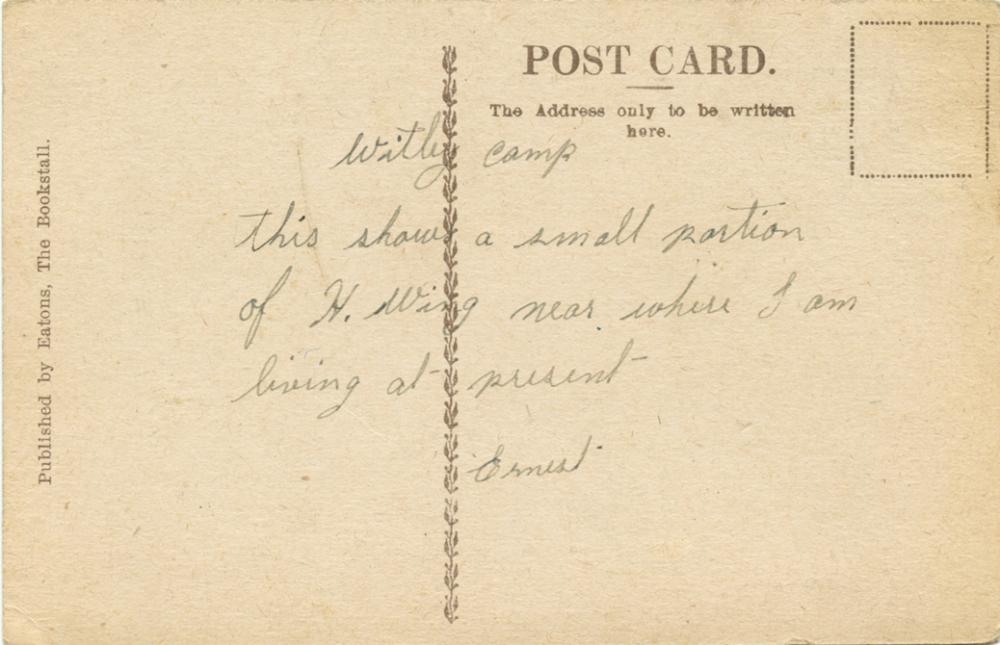 POST CARD.
The Address only to be written
here.
Published by Eatons, The Bookstall.
Witley camp
this shows a small portion
of H. Wing near where I am
living at present
Ernest